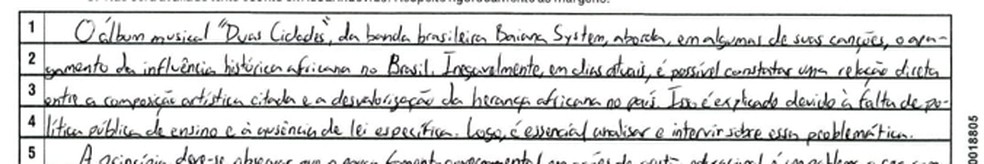 1 O álbum musical "Duas Cidades", da banda brasileira Baiana System, aborda, em algumas de suas canções, o apa-
2 gamento da influência histórica africana no Brasil. Inegavelmente, em dias atuais, é possível constatar uma relação direta
3 entre a composição artística citada e a desvalorização da herança africana no país. Isso é explicado devido à falta de po-
4 lítica pública de ensino e à ausência de lei específica. Logo, é essencial analisar e intervir sobre essa problemática.
5 A princípio, deve-se observar que o
0018805